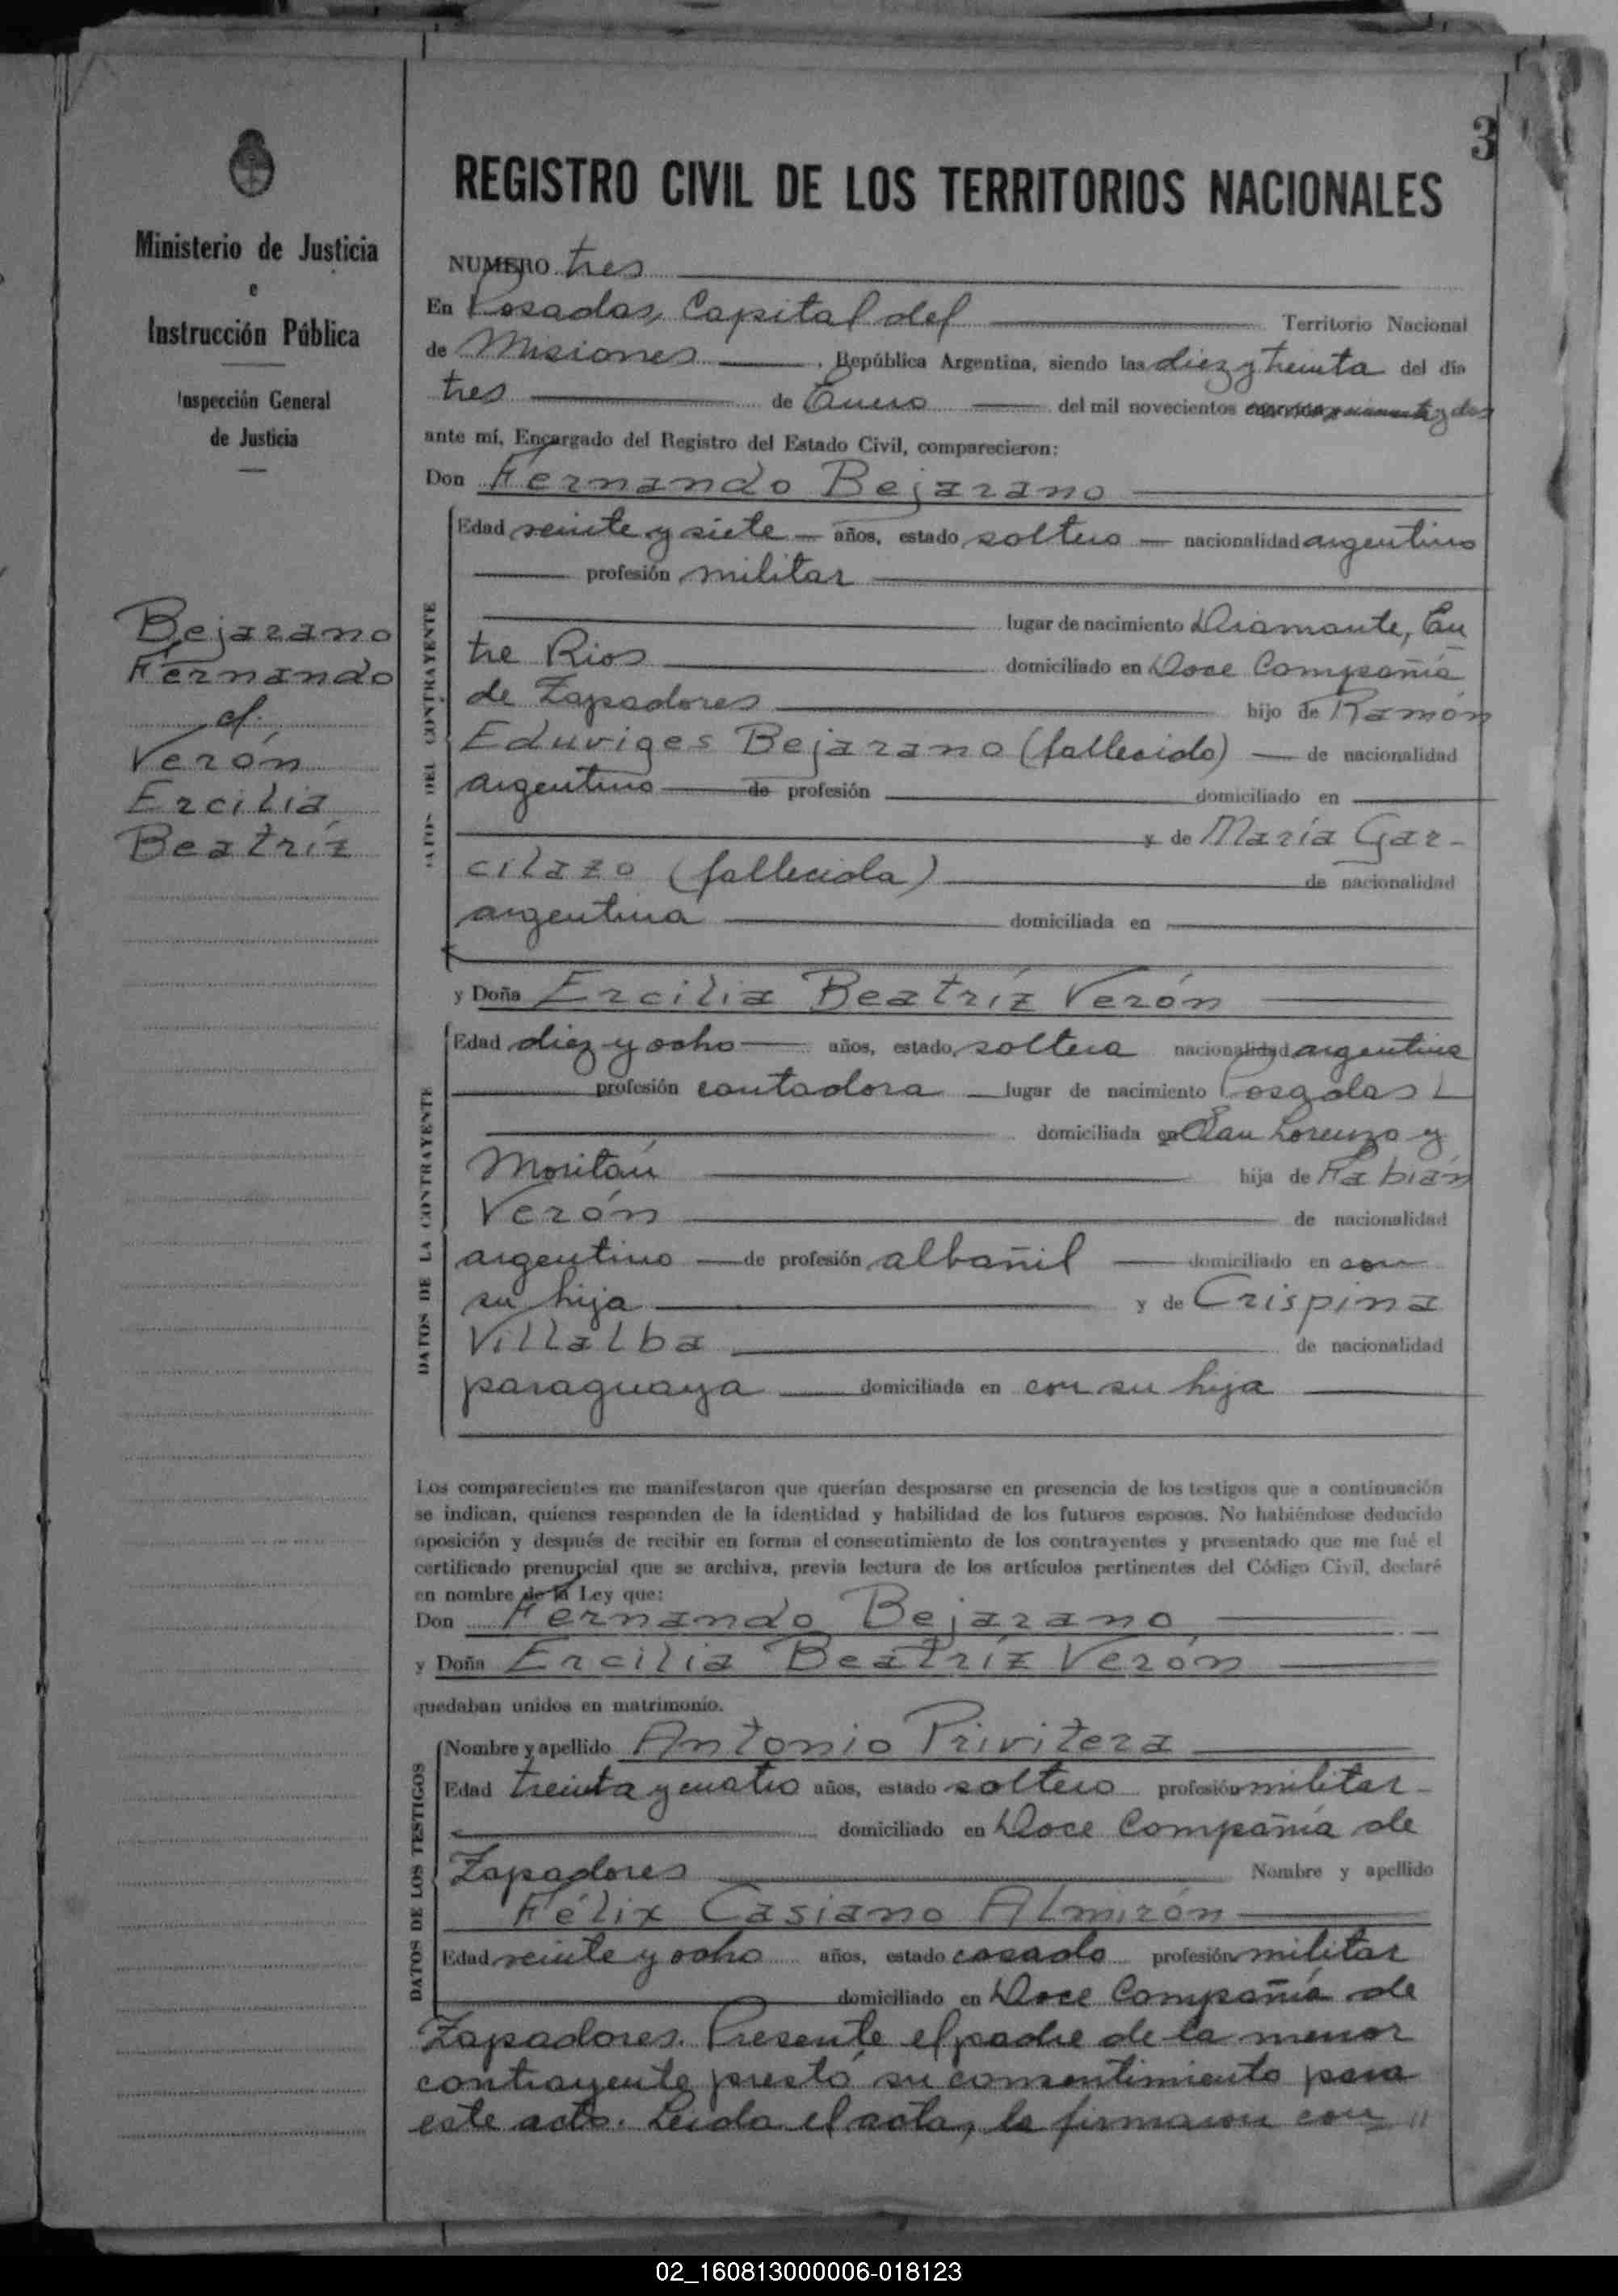 3
REGISTRO CIVIL DE LOS TERRITORIOS NACIONALES
Ministerio de Justicia
e
Instrucción Pública
Inspección General
de Justicia
Bejarano
Fernando
c/.
Verón
Ercilia
Beatríz
NUMERO tres
En Posadas, Capital del Territorio Nacional
de Misiones, República Argentina, siendo las diez y treinta del día
tres de Enero del mil novecientos y dos
ante mí, Encargado del Registro del Estado Civil, comparecieron:
Don Fernando Bejarano
DATOS DEL CONTRAYENTE
Edad veinte y siete años, estado soltero nacionalidad argentino
profesión militar
lugar de nacimiento Diamante, En
tre Rios domiciliado en Doce Compañía
de Zapadores hijo de Ramón
Eduviges Bejarano (fallecido) de nacionalidad
argentino de profesión domiciliado en
y de María Gar-
cilazo (fallecida) de nacionalidad
argentina domiciliada en
y Doña Ercilia Beatríz Verón
DATOS DE LA CONTRAYENTE
Edad diez y ocho años, estado soltera nacionalidad argentina
profesión contadora lugar de nacimiento Posadas
domiciliada en San Lorenzo y
Moritán hija de Fabián
Verón de nacionalidad
argentino de profesión albañil domiciliado en con
su hija y de Crispina
Villalba de nacionalidad
paraguaya domiciliada en con su hija
Los comparecientes me manifestaron que querían desposarse en presencia de los testigos que a continuación
se indican, quienes responden de la identidad y habilidad de los futuros esposos. No habiéndose deducido
oposición y después de recibir en forma el consentimiento de los contrayentes y presentado que me fué el
certificado prenupcial que se archiva, previa lectura de los artículos pertinentes del Código Civil, declaré
en nombre de la Ley que:
Don Fernando Bejarano
y Doña Ercilia Beatríz Verón
quedaban unidos en matrimonio.
DATOS DE LOS TESTIGOS
Nombre y apellido Antonio Privitera
Edad treinta y cuatro años, estado soltero profesión militar
domiciliado en Doce Compañía de
Zapadores Nombre y apellido
Félix Casiano Almirón
Edad veinte y ocho años, estado casado profesión militar
domiciliado en Doce Compañía de
Zapadores. Presente el padre de la menor
contrayente prestó su consentimiento para
este acto. Leida el acta, la firmaron con "
02_160813000006-018123